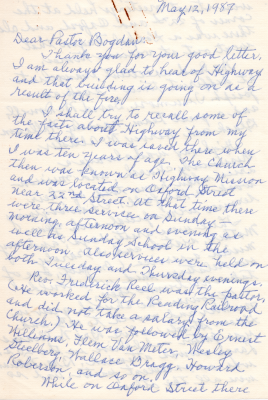 May 12, 1987
Dear Pastor Bogdan:
Thank you for your good letter.
I am always glad to hear of Highway
and that building is going on as a
result of the fire.
I shall try to recall some of
the facts about Highway from my
time there. I was saved there when
I was ten years of age. The Church
then was known as Highway Mission
and was located on Oxford Street
near 22nd Street. At that time there
were three services on Sunday -
morning, afternoon and evening as
well as Sunday School in the
afternoon. Also services were held on
both Tuesday and Thursday evenings.
Rev. Frederick Keel was the pastor,
(He worked for the Reading Railroad
and did not take a salary from the
Church.) He was followed by Ernest
Williams, Flem Van Meter, Wesley
Steelberg, Wallace Bragg, Howard
Roberson, and so on.
While on Oxford Street there